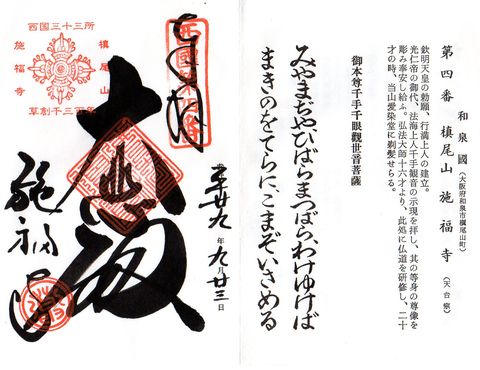 第四番 槇尾山 施福寺 (天台宗)
和泉國 (大阪府和泉市槇尾山町)
欽明天皇の勅願、行満上人の建立。
光仁帝の御代、法海上人千手観音の示現を拝し、其の等身の尊像を
彫み奉安し給ふ。弘法大師十六才より、此処に仏道を研修し、二十
才の時、当山愛染堂に剃髪せらる。
御本尊千手千眼觀世音菩薩
みやまぢやひばらまつばらわけゆけば
まきのをてらにこまぞいさめる
西国三十三所
槙尾山
施福寺
草創千三百年
奉拝
大悲殿
施福寺
平廿九年九月廿三日